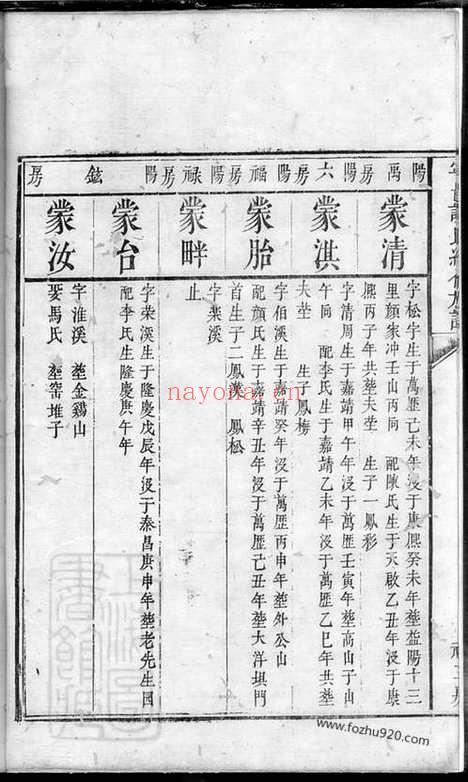 陽禹房
陽六房
陽福房
陽禄房
陽鉉房
蒙清
字松宇生于萬歷己未年没于康熙癸未年塟益陽十三
里顏家冲壬山丙向 配陳氏生于天啟乙丑年没于康
熙丙子年共塟夫塋 生子一鳳彩
蒙淇
字清周生于嘉靖甲午年没于萬歷壬寅年塟高山子山
午向 配李氏生于嘉靖乙未年没于萬歷乙巳年共塟
夫塋 生子鳳梅
蒙胎
字相溪生于嘉靖癸年没于萬歷丙申年塟外公山
配顏氏生于嘉靖辛丑年没于萬歷己丑年塟大洋垻門
首生子二鳳漢 鳳松
蒙畔
字樂溪
止
蒙台
字荣溪生于隆慶戊辰年没于泰昌庚申年塟老先生園
配李氏生隆慶庚午年
蒙汝
字淮溪 塟金鷄山
娶馬氏 塟窑堆子
nayona.cn
www.fozhu920.com